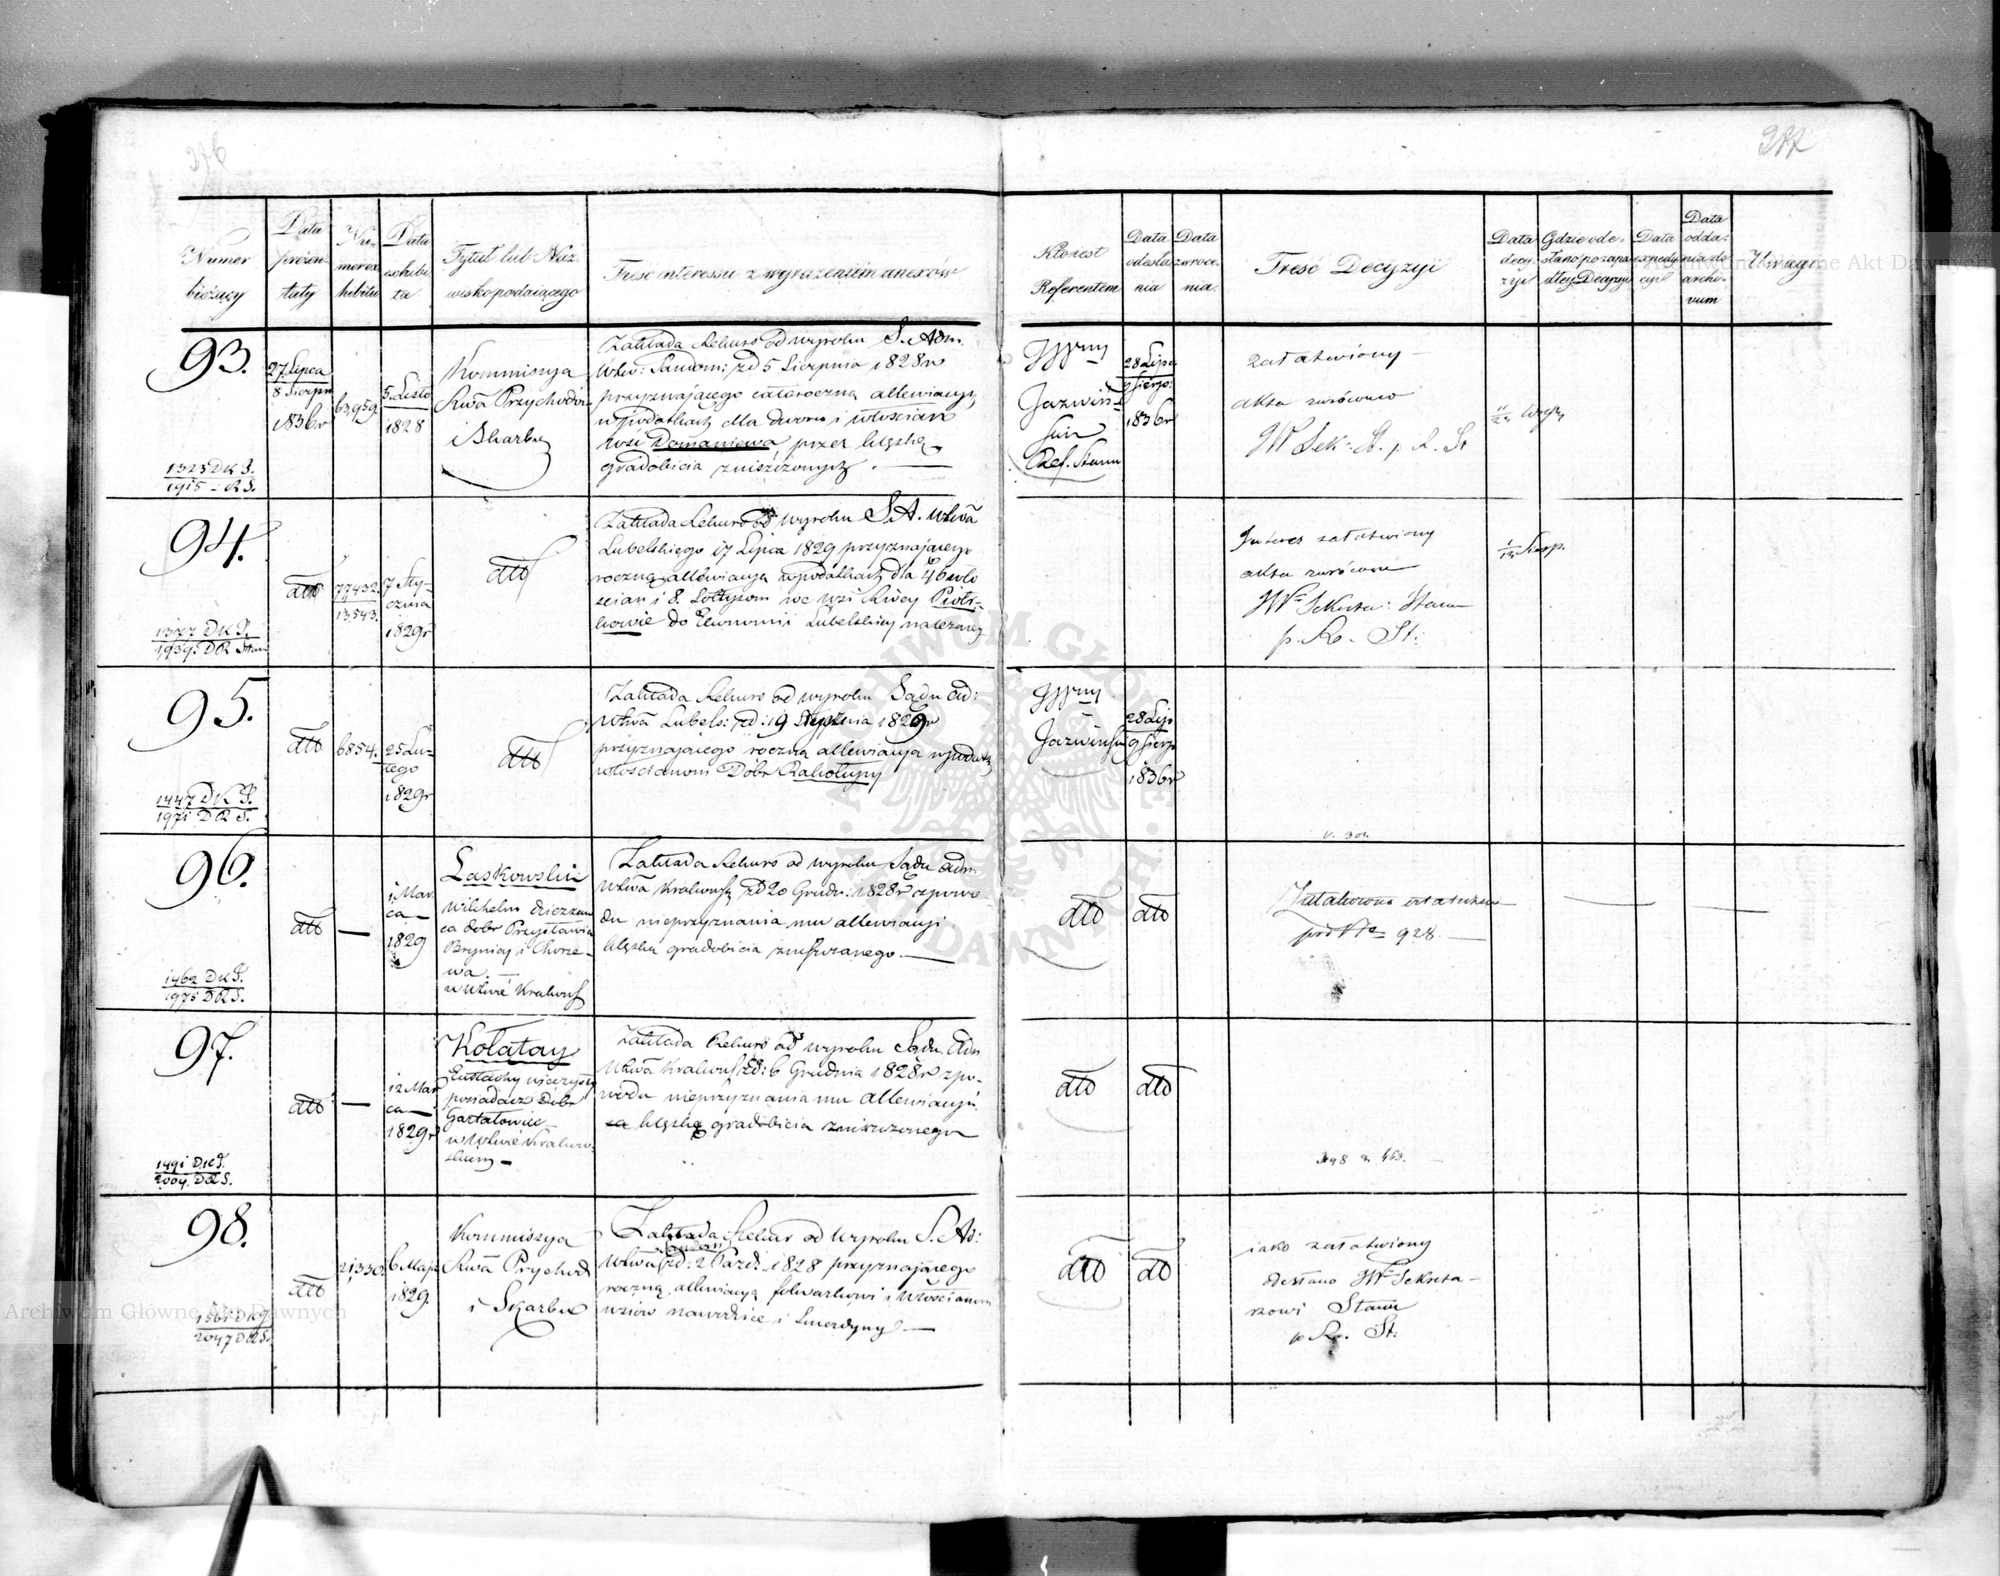 276
277
Numer bieżący
Data prezentaty
Numer exhibitu
Data exhibita
Tytuł lub Nazwisko podaiącego
Treść interessu z wyrażeniem anexów
Kto iest Referentem
Data odesłania
Data zwrócenia.
Treść Decyzyi
Data decyzyi
Gdzie odesłano po zapadłey Decyzyi
Data expedycyi
Data oddania do archivum
Uwagi
93.
1323 DKP.
1915 - RS.
27 Lipca
8 Sierpn
1836r
63,959.
5. Listo
1828
Kommissya
Rwa Przychodów
i Skarbu
Zakłada Rekurs od wyroku S. Adm.
Wtwa: Sandom: zd 5 Sierpnia 1828r
przyznającego całoroczną allewiancyę
w podatkach dla dworu i włościan
wsi Domaniewa przez klęskę
gradobicia zniszczonych.
Jazwiń-
ski
Ref. Stanu
28 Lipca
9 Sierp:
1836r
załatwiony
akta zwrócono
JW Sek: St. p. R. St
94.
1327 DKP.
1939. DR Stan
dtto
77,432.
13,543.
7 Sty-
cznia
1829r
dtto
Zakłada Rekurs od wyroku S. A. Wtwa
Lubelskiego 17 Lipca 1829 przyznającego
roczną allewiancyą w podatkach dla 46 wło
ścian i 8. Sołtysom we wsi Piotr-
kowie do Ekonomii Lubelskiey należącey
Interes załatwiony
akta zwrócono
JW Sekreta: Stanu
p. Ra. St:
95.
1447 DKP.
1971 DRS.
dtto
6854.
25 Lu-
tego
1829r
dtto
Zakłada Rekurs od wyroku Sądu ad:
Wtwa Lubels: zd: 19 Stycznia 1829r
przyznającego roczną allewiancyą w podatk
włościanom Dóbr Rakołupy
Jazwiński
28 Lip
9 Sierp
1836r
96.
1462 DKP.
1975 DRS.
dtto
—
1. Mar
ca
1829
Laskowski
Wilhelm dzierzaw
ca dobr Przystawia
Bryniey i Chorze-
wa.
w Wtwie Krakows
Zakłada Rekurs od wyroku Sądu adm
Wtwa Krakows zd 20 Grudn: 1828r z powo
du nieprzyznania mu allewiancyi
klęską gradobicia zniszczonego.
dtto
dtto
Załatwiono ostatecznie
pod Nr 928.
97.
1491 DKP.
2004. DRS.
dtto
—
12 Mar
ca
1829r
Kołątay
Eustachy wieczysty
posiadacz Dóbr
Gartatowic
w Wtwie Krakow-
skiem
Zakłada Rekurs od wyroku Sądu Adm
Wtwa Krakows zd: 6 Grudnia 1828r z po-
wodu nieprzyznania mu allewiancyi
za klęskę gradobicia zniszczonego
dtto
dtto
98.
2047 DRS.
dtto
21,330.
6 Maja
1829.
Kommissya
Rwa Przychod
i Skarbu
Zakłada Rekurs od wyroku S. Ad:
Wtwa Sandom zd: 2 Paźdz. 1828 przyznającego
roczną allewiancyą folwarkowi i włościanom
wsiów Nawodzice i Smerdyny
dtto
dtto
iako załatwiony
odesłano JW Sekreta-
rzowi Stanu
p Ra. St:
Archiwum Główne Akt Dawnych
Archiwum Główne Akt Dawnych
ARCHIWUM GŁÓWNE AKT DAWNYCH